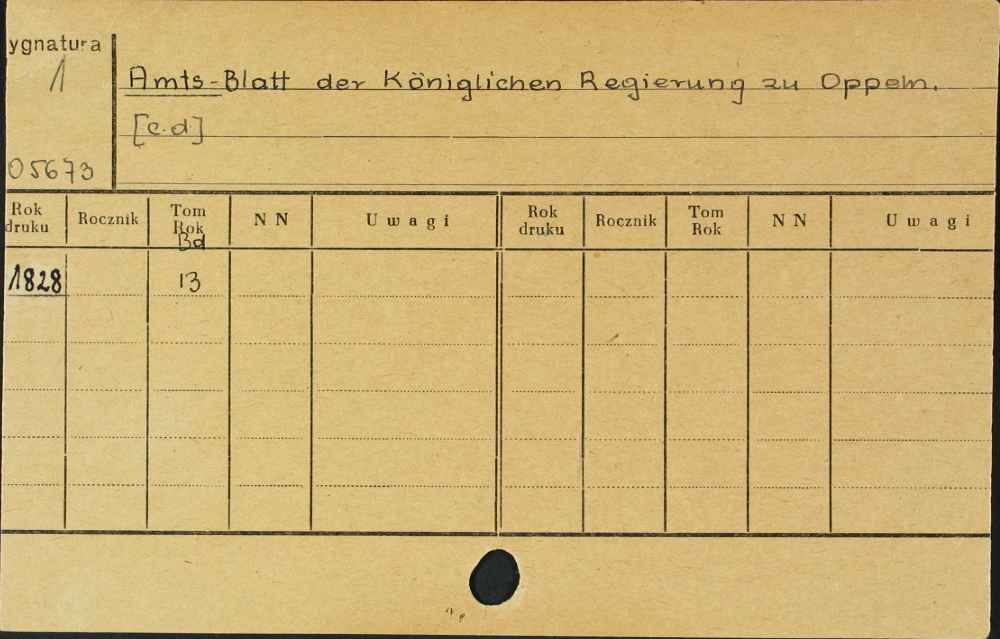 ygnatura
1
Amts-Blatt der Königlichen Regierung zu Oppeln.
[c.d.]
05673
Rok druku Rocznik Tom Rok N N Uwagi Rok druku Rocznik Tom Rok N N Uwagi
Bd
1828 13